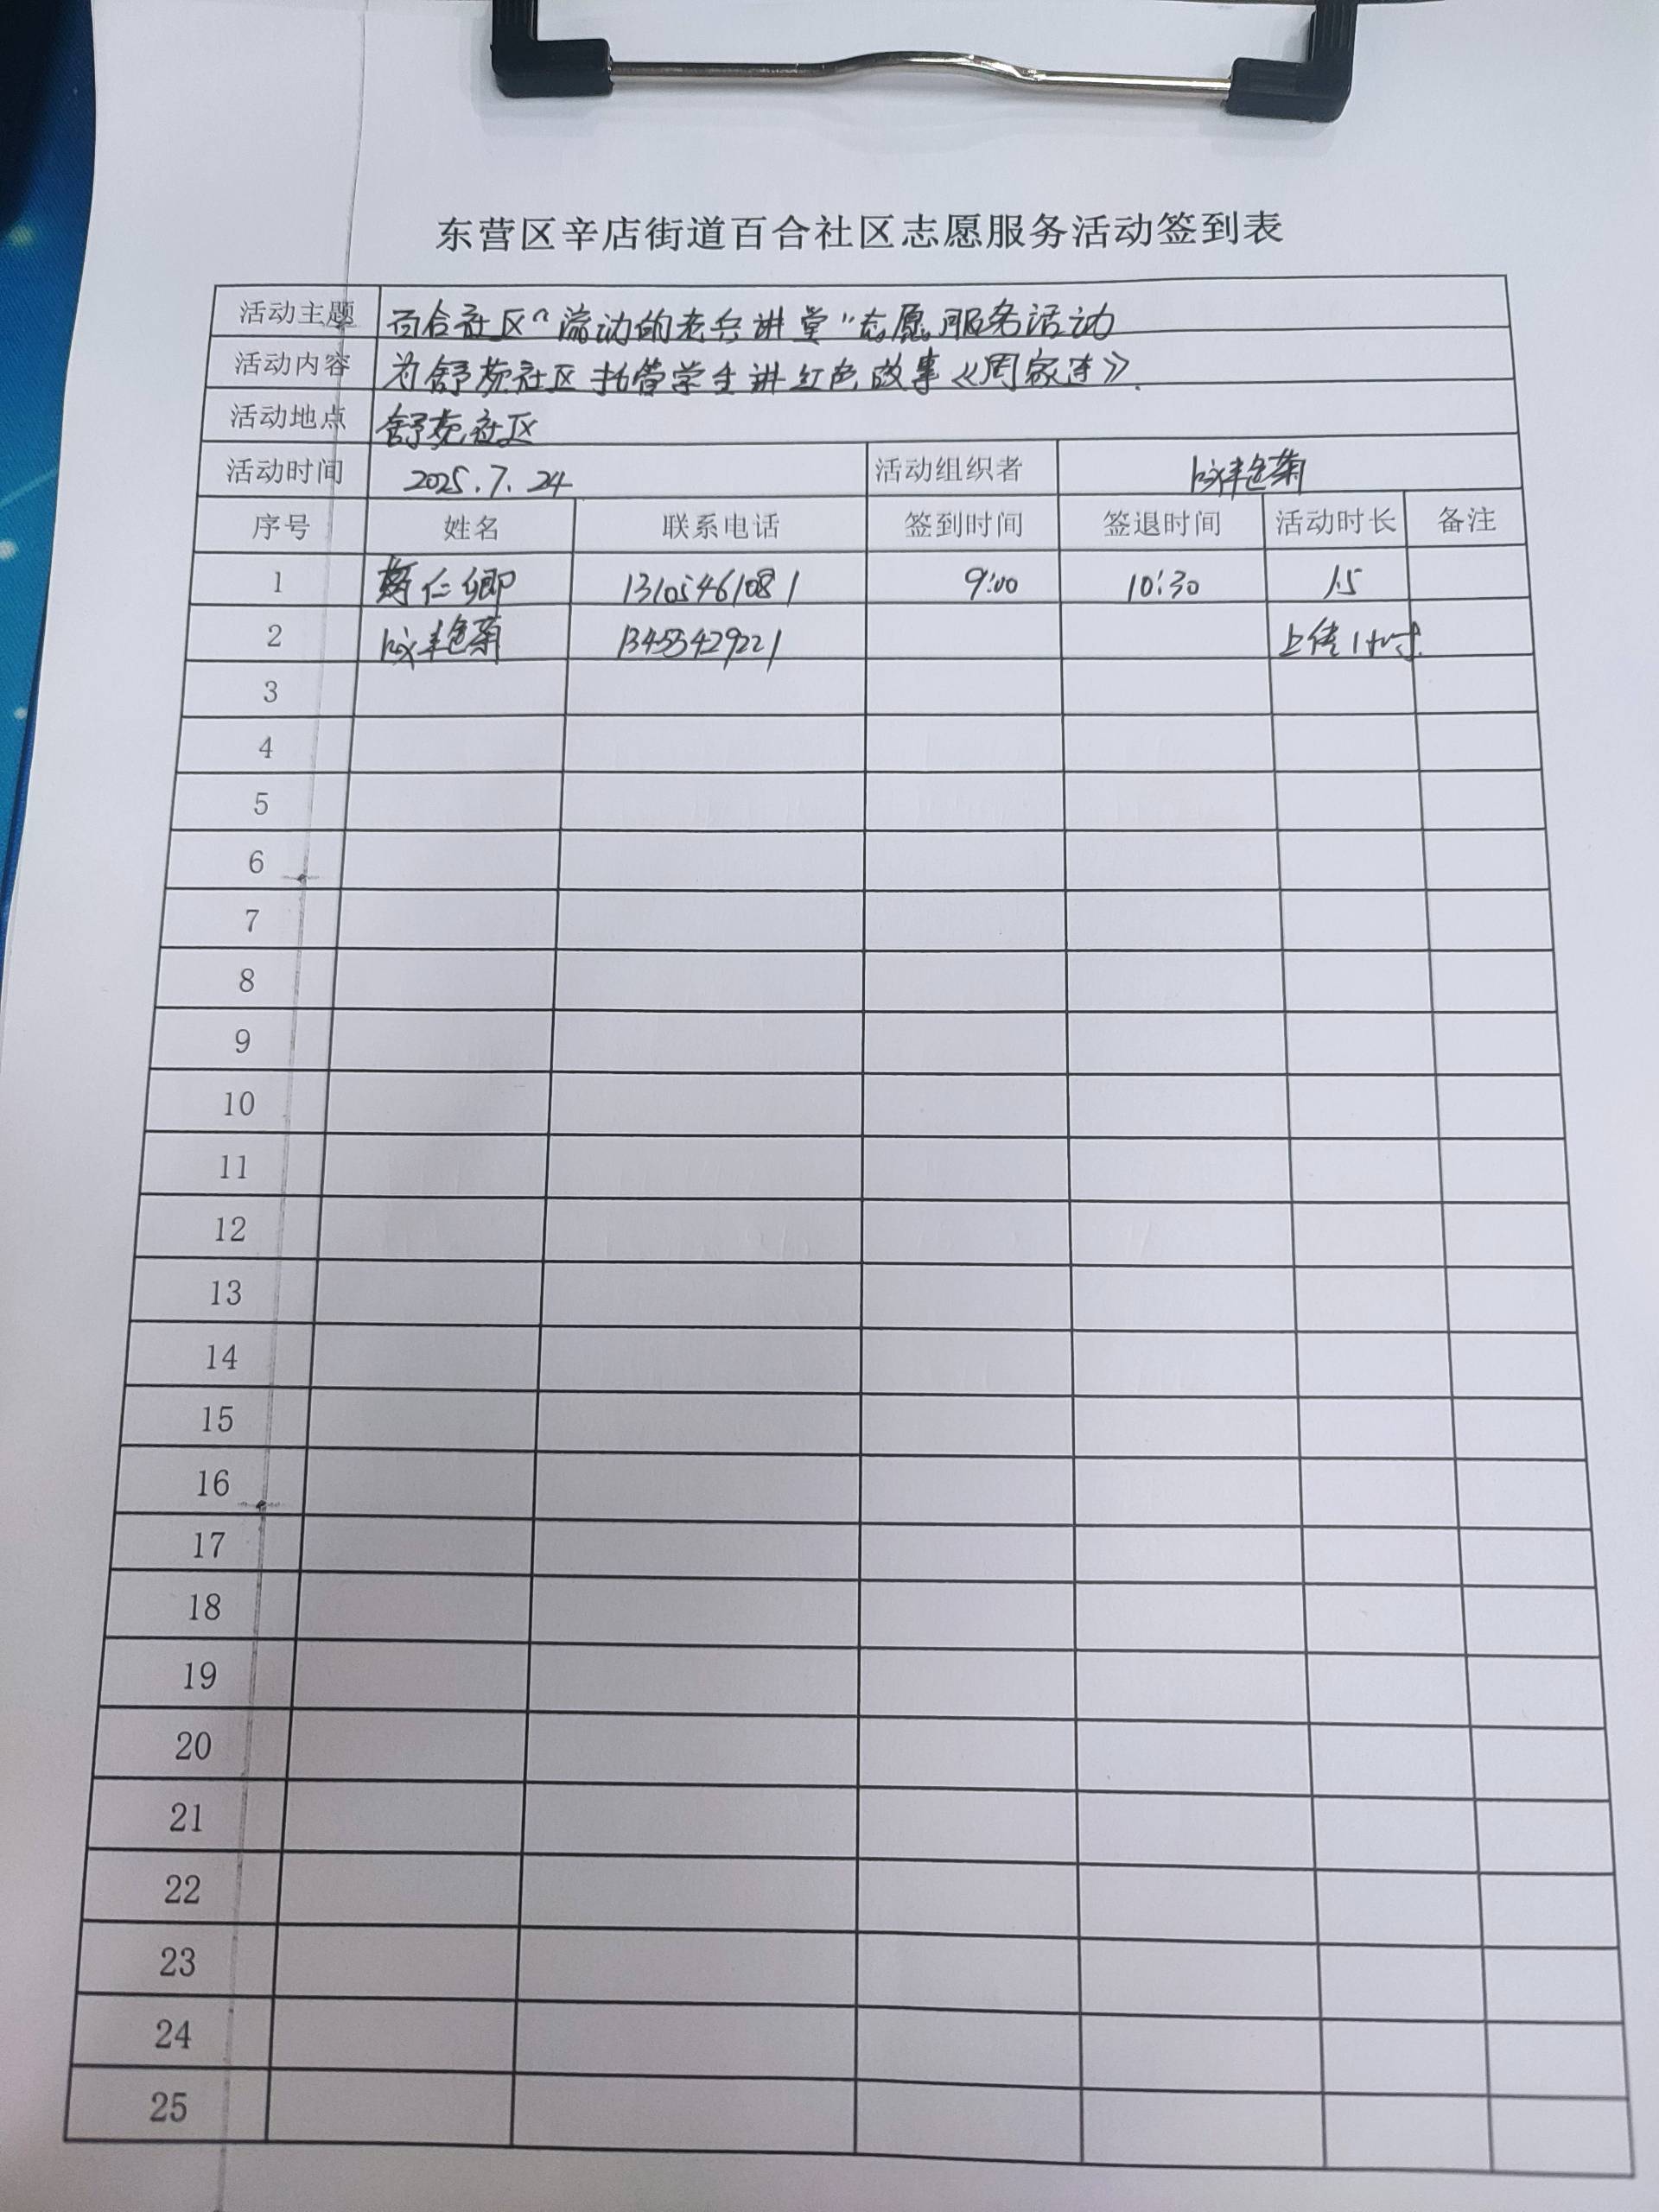 东营区辛店街道百合社区志愿服务活动签到表
活动主题 百合社区“流动的老兵讲堂”志愿服务活动
活动内容 为舒苑社区托管学生讲红色故事《周家连》.
活动地点 舒苑社区
活动时间 2025.7.24 活动组织者 艳菊
序号 姓名 联系电话 签到时间 签退时间 活动时长 备注
1 仁卿 13105461081 9:00 10:30 1.5
2 艳菊 上传1小时.
3
4
5
6
7
8
9
10
11
12
13
14
15
16
17
18
19
20
21
22
23
24
25